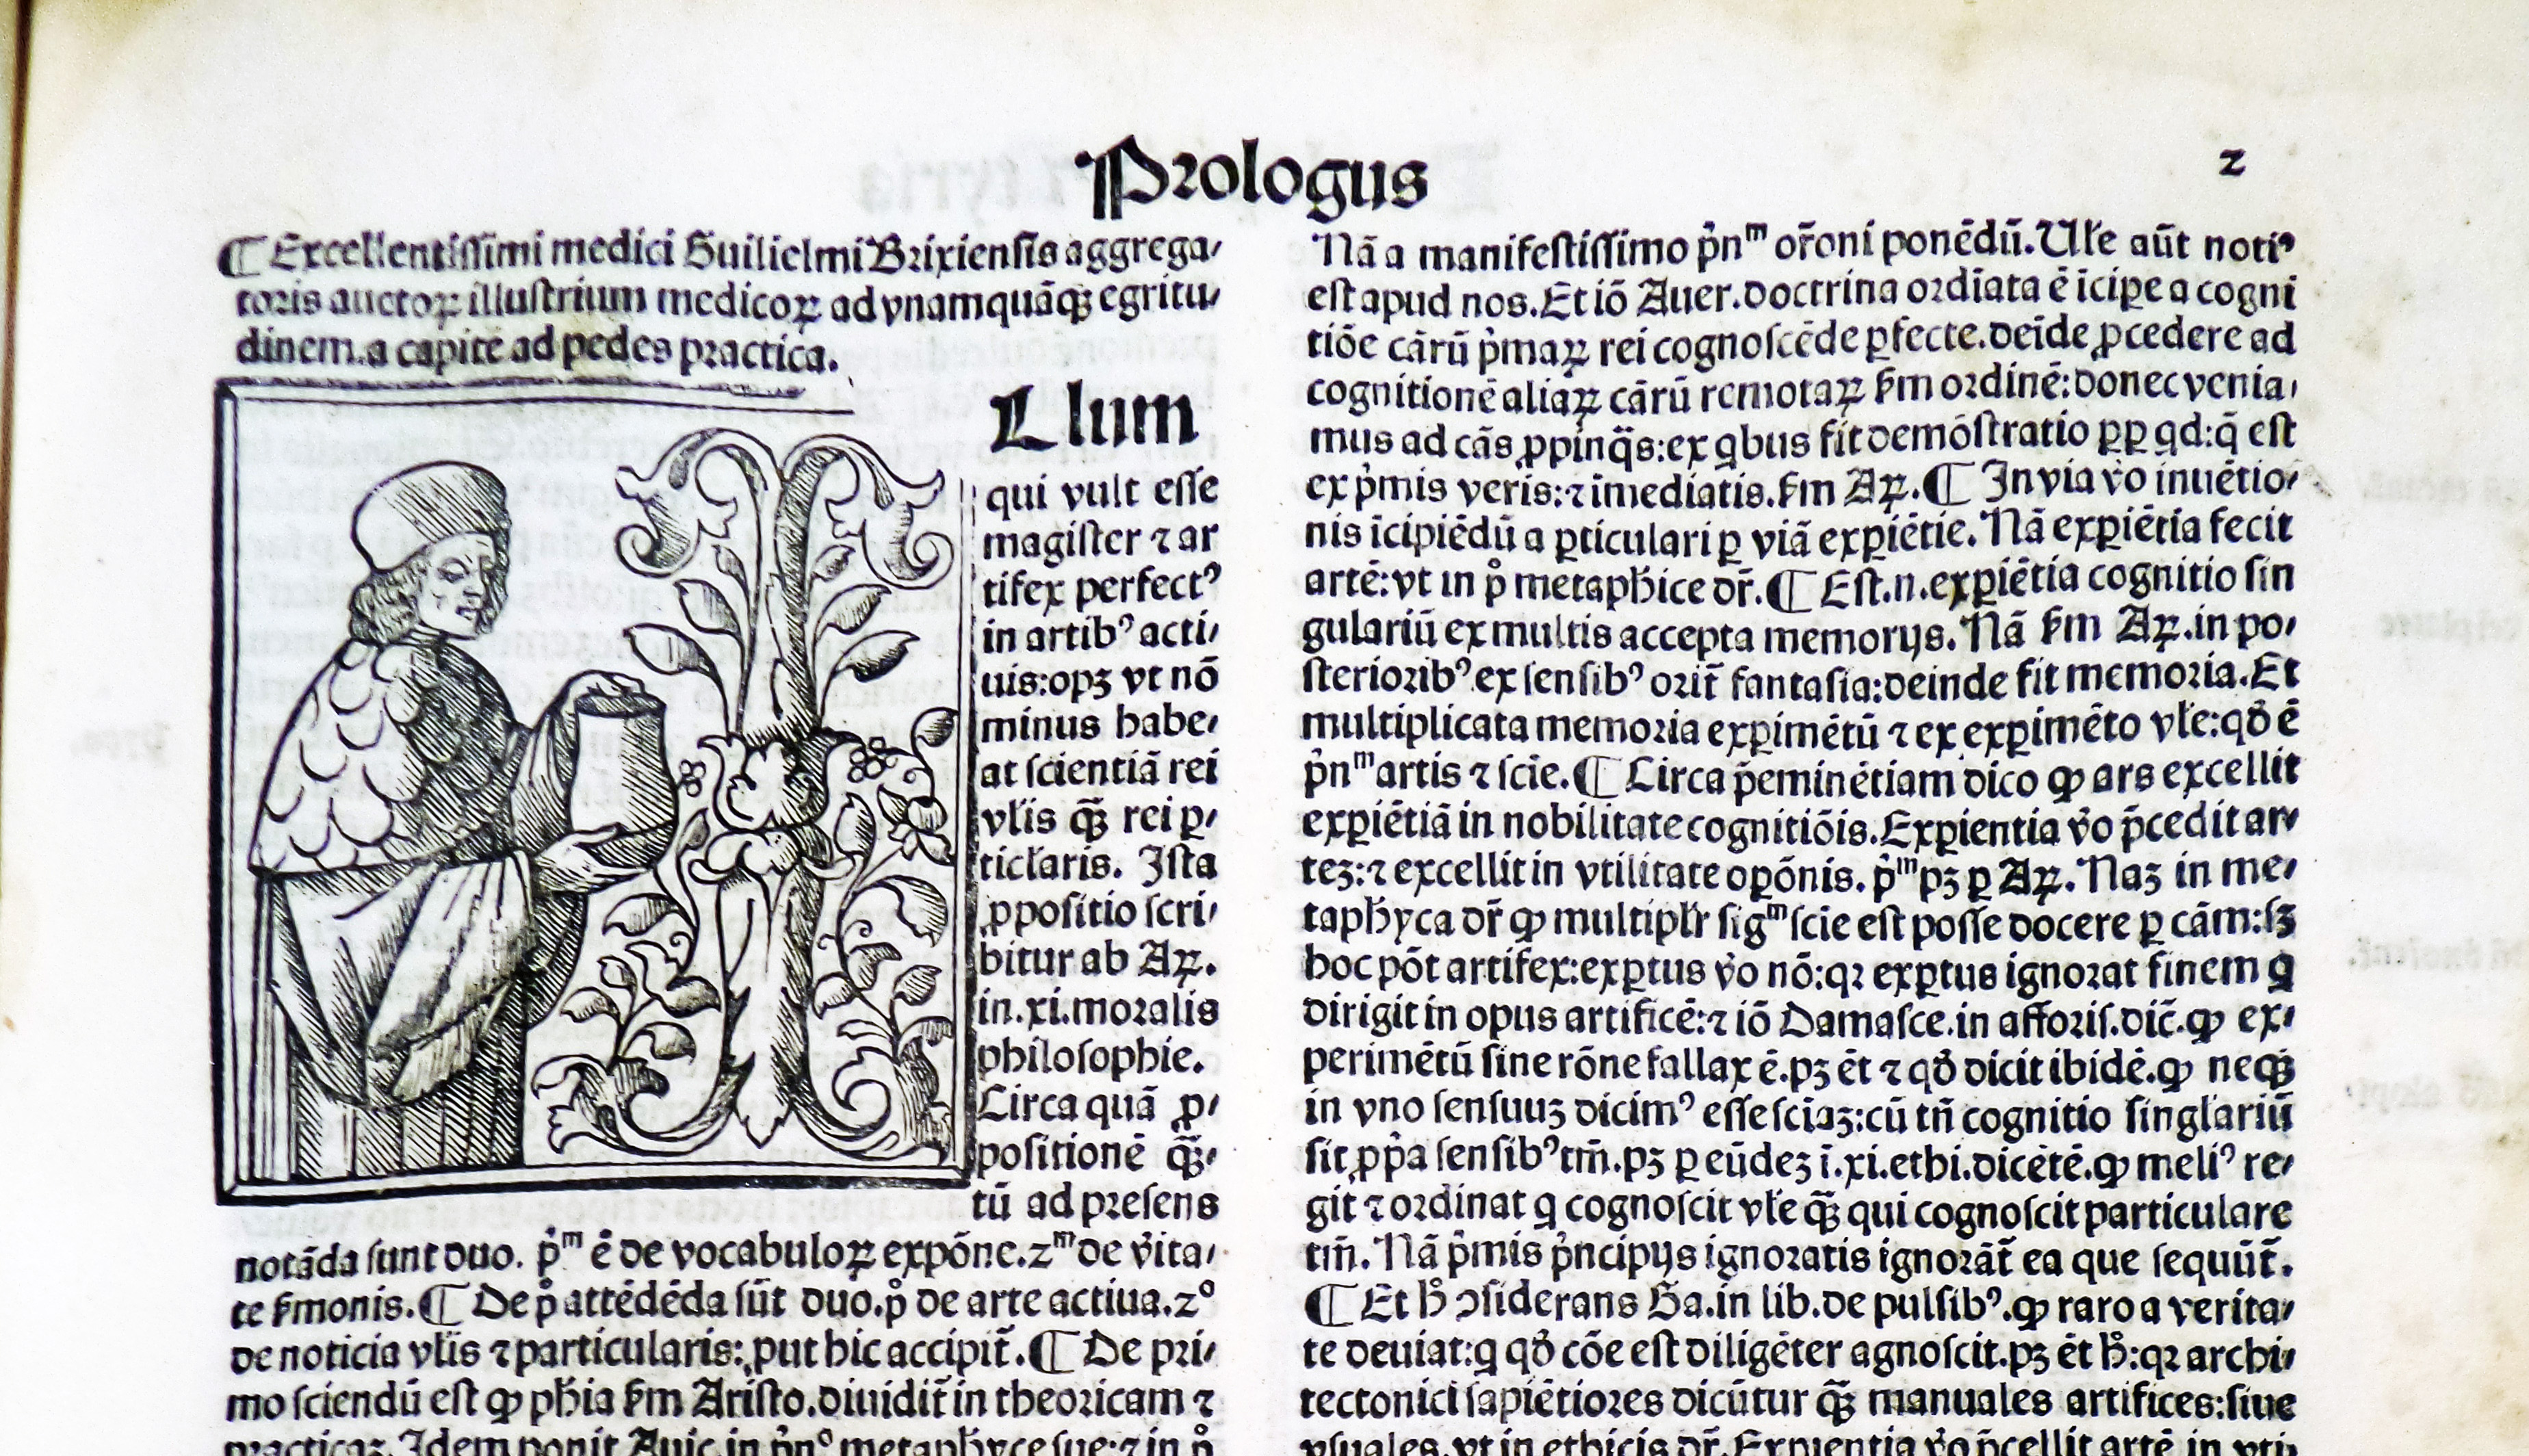 Prologus
2
¶ Excellentissimi medici Guilielmi Brixiensis aggrega⸗
toris auctoꝝ illustrium medicoꝝ ad vnamquāqꝫ egritu⸗
dinem.a capite ad pedes practica.
Llum
qui vult esse
magister ⁊ ar
tifex perfectꝰ
in artibꝰ acti⸗
uis:opꝫ vt nō
minus habe⸗
at scientiā rei
vl̓is qꝫ̄ rei ꝑ⸗
ticl̓aris. Ista
ꝓpositio scri⸗
bitur ab Aꝝ.
in.xi.moralis
philosophie.
Circa quā ꝓ⸗
positionē qꝫ̄⸗
tū ad presens
notāda sunt duo. p̓ᵐ ē de vocabuloꝝ expōne.2ᵐ de v̓ita⸗
te ẜmonis.¶ De p̊ attēdēda sūt duo.p̊ de arte actiua.2°
de noticia vl̓is ⁊ particularis:ꝓut hic accipit̄.¶ De pri⸗
mo sciendū est ꝙ ph̄ia ẜm Aristo.diuidit̄ in theoricam ⁊
practicaꝫ.Idem ponit Auic.in p̓nᵒ metaph̄yce sue:⁊ in p̊
Nā a manifestissimo p̓nᵐ or̄oni ponēdū.Ul̓e aūt notiꝰ
est apud nos.Et iō Auer.doctrina ordīata ē īciꝑe a cogni
tiōe cārū p̓maꝝ rei cognoscēde ꝑfecte.deīde ꝓcedere ad
cognitionē aliaꝝ cārū remotaꝝ ẜm ordinē:donec venia⸗
mus ad cās ꝓpinq̄s:ex qbus fit demōstratio ꝑꝑ qd:q̄ est
ex p̓mis veris:⁊ imediatis.ẜm Aꝝ.¶ In via v̓o inuētio⸗
nis īcipiēdū a ꝑticulari ꝑ viā exꝑiētie. Nā exꝑiētia fecit
artē:vt in p̊ metaph̄ice dr̄.¶ Est.n.exꝑiētia cognitio sin
gulariū ex multis accepta memorijs. Nā ẜm Aꝝ.in po⸗
sterioribꝰ.ex sensibꝰ orit̄ fantasia:deinde fit memoria.Et
multiplicata memoria exꝑimētū ⁊ ex exꝑimēto vl̓e:qđ ē
p̓nᵐ artis ⁊ scie.¶ Circa p̄eminētiam dico ꝙ ars excellit
exꝑiētiā in nobilitate cognitiōis.Exꝑientia v̓o p̄cedit ar⸗
teꝫ:⁊ excellit in vtilitate oꝑōnis. p̓ᵐ pꝫ ꝑ Aꝝ. Naꝫ in me⸗
taph̄yca dr̄ ꝙ multipl̓r sigᵐ scie est posse docere ꝑ cām:sꝫ
hoc pōt artifex:exꝑtus v̓o nō:qꝛ exꝑtus ignorat finem q
dirigit in opus artificē:⁊ iō Damasce.in afforis.dic̄.ꝙ ex⸗
perimētū sine rōne fallax ē.pꝫ ēt ⁊ qđ dicit ibidē.ꝙ neqꝫ
in vno sensuuꝫ dicimꝰ esse sciaꝫ:cū tn̄ cognitio singl̓ariū
sit ꝓp̓a sensibꝰ tm̄.pꝫ ꝑ eūdeꝫ ī.xi.ethi.dicētē.ꝙ meliꝰ re⸗
git ⁊ ordinat q cognoscit vl̓e qꝫ̄ qui cognoscit particulare
tm̄. Nā p̓mis p̓ncipijs ignoratis ignorāt̄ ea que sequūt̄.
¶ Et h̊ ꝯsiderans Ga.in lib.de pulsibꝰ.ꝙ raro a verita⸗
te deuiat:q qđ cōe est diligēter agnoscit.pꝫ ēt h̊:qꝛ archi⸗
tectonici sapiētiores dicūtur qꝫ̄ manuales artifices:siue
vsuales.vt in ethicis dr̄.Exꝑientia v̓o p̄cellit artē in vti⸗